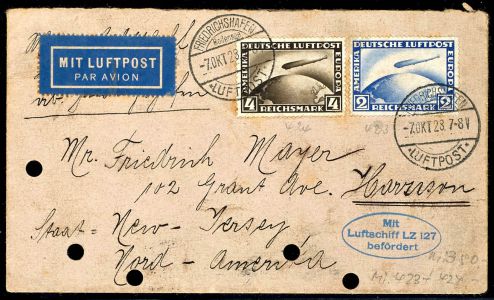 MIT LUFTPOST
PAR AVION
FRIEDRICHSHAFEN
Bodensee
-7.OKT 28
LUFTPOST
DEUTSCHE LUFTPOST
AMERIKA
EUROPA
4 REICHSMARK 4
DEUTSCHE LUFTPOST
AMERIKA
EUROPA
2 REICHSMARK 2
-7.OKT 28. 7-8 V
LUFTPOST
Mr. Friedrich Mayer
102 Grant Ave. Harrison
Staat: New-Jersey
Nord-Amerika
Mit
Luftschiff LZ 127
befördert
Mi. 423 + 424